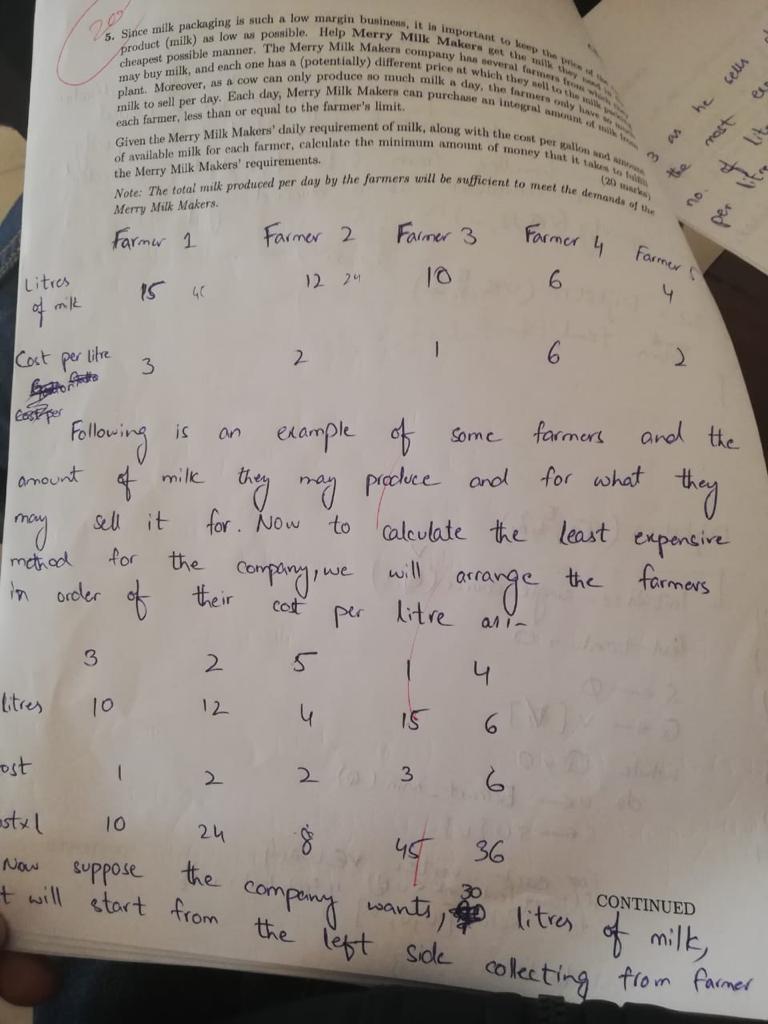 20
5. Since milk packaging is such a low margin business, it is important to keep the price of the
product (milk) as low as possible. Help Merry Milk Makers get the milk they need in
cheapest possible manner. The Merry Milk Makers company has several farmers from which
may buy milk, and each one has a (potentially) different price at which they sell to the milk
plant. Moreover, as a cow can only produce so much milk a day, the farmers only have so
milk to sell per day. Each day, Merry Milk Makers can purchase an integral amount of milk from
each farmer, less than or equal to the farmer's limit.
Given the Merry Milk Makers' daily requirement of milk, along with the cost per gallon and amount
of available milk for each farmer, calculate the minimum amount of money that it takes to fulfill
the Merry Milk Makers' requirements. (20 marks)
Note: The total milk produced per day by the farmers will be sufficient to meet the demands of the
Merry Milk Makers.
Farmer 1 Farmer 2 Farmer 3 Farmer 4 Farmer 5
Litres of milk 15 12 24 10 6 4
Cost per litre 3 2 1 6 2
Cost per
Following is an example of some farmers and the
amount of milk they may produce and for what they
may sell it for. Now to calculate the least expensive
method for the company, we will arrange the farmers
in order of their cost per litre as:-
3 2 5 1 4
litres 10 12 4 15 6
ost 1 2 2 3 6
ostxl 10 24 8 45 36
Now suppose the company wants, 30 litres of milk,
t will start from the left side collecting from farmer
CONTINUED
3 as he sells
the most
no. of lit
per litre